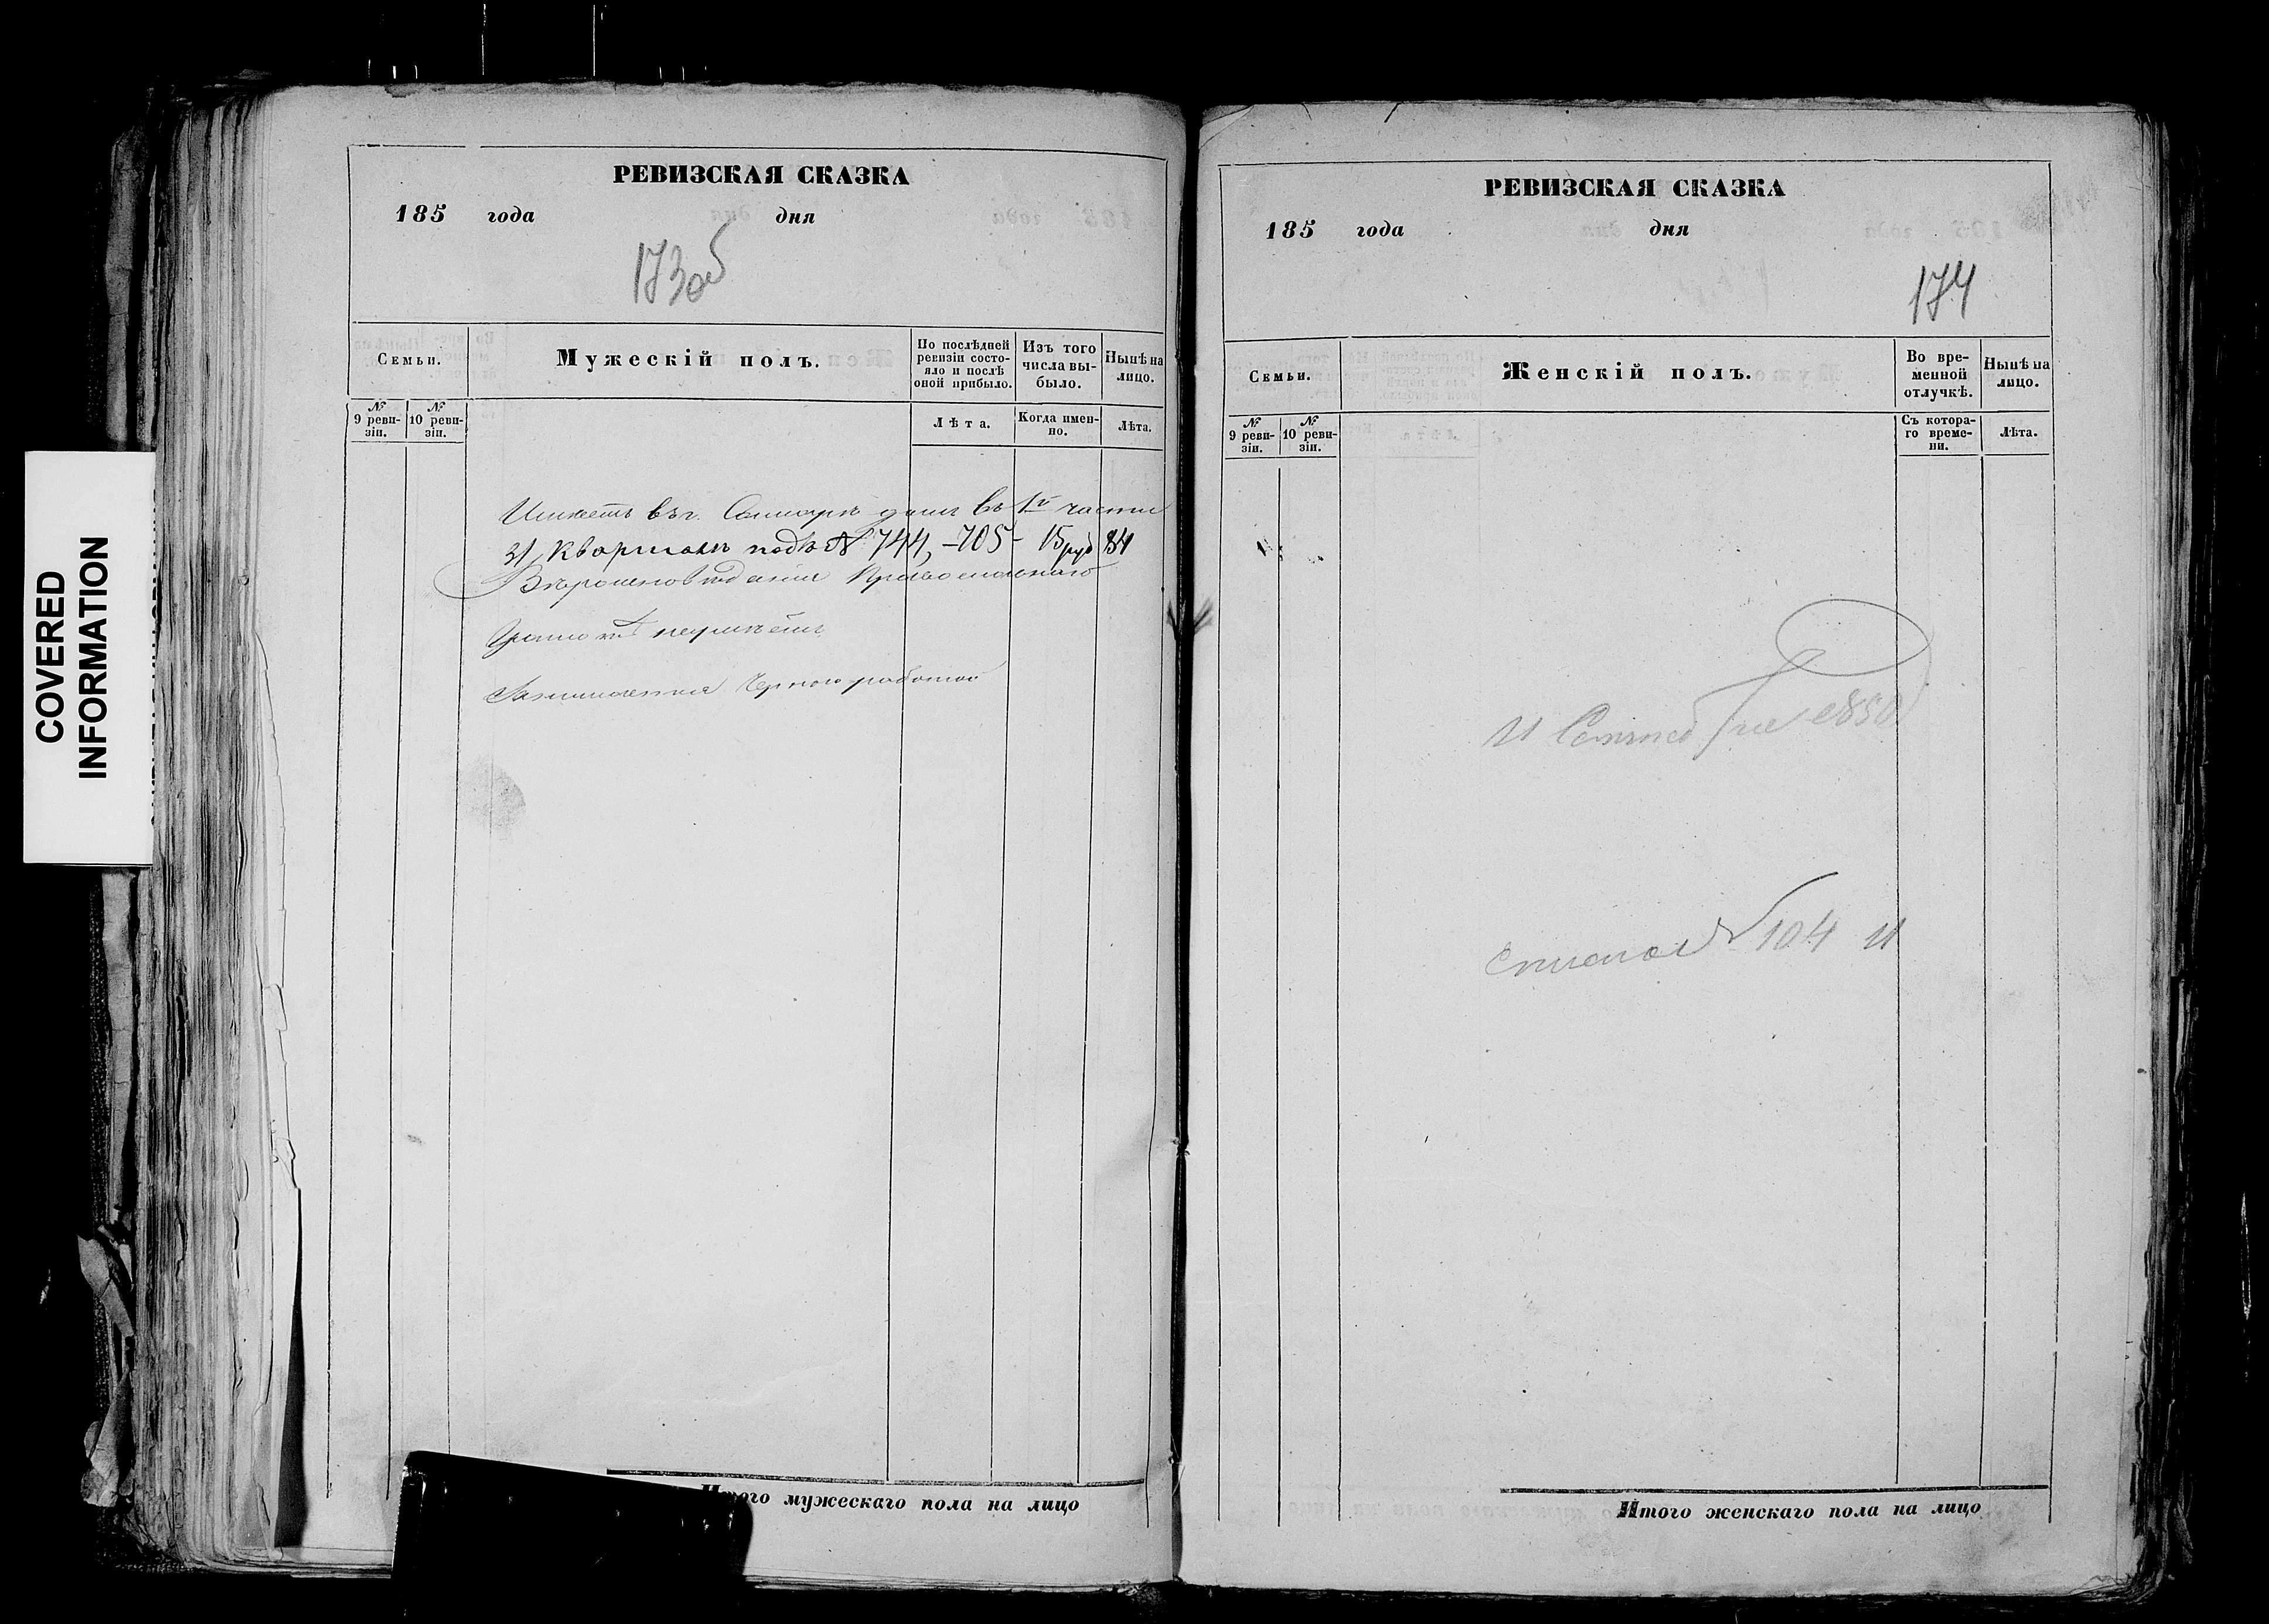 COVERED
INFORMATION
РЕВИЗСКАЯ СКАЗКА
185 года дня
173об
Семьи.
Мужескій полъ.
По послѣдней ревизіи состояло и послѣ оной прибыло.
Изъ того числа выбыло.
Нынѣ на лицо.
№ 9 ревизіи.
№ 10 ревизіи.
Лѣта.
Когда именно.
Лѣта.
Имѣетъ въ г. Самарѣ домъ въ 1й части
21 Кварталѣ подъ № 744, – 705 – 15 руб 84
Вѣроисповѣданія Православнаго
Грамотѣ неумѣетъ
Занимается Черною работою
Итого мужескаго пола на лицо
РЕВИЗСКАЯ СКАЗКА
185 года дня
174
Семьи.
Женскій полъ.
Во временной отлучкѣ.
Нынѣ на лицо.
№ 9 ревизіи.
№ 10 ревизіи.
Съ котораго времени.
Лѣта.
№ 104
Итого женскаго пола на лицо